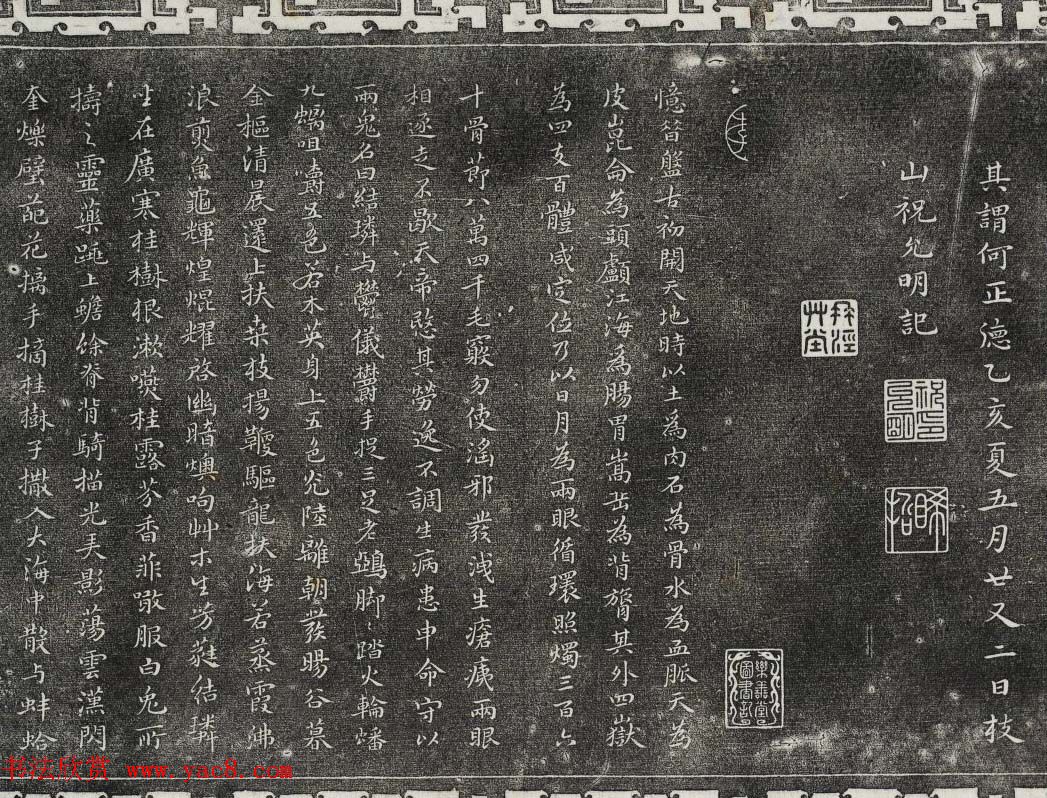 其謂何正德乙亥夏五月廿又二日枝
山祝允明記
祝印允明
晞哲
憶昔盤古初開天地時以土為肉石為骨水為血脈天為
皮崑侖為頭顱江海為腸胃嵩岳為背膂其外四嶽
為四支百體咸定位乃以日月為兩眼循環照燭三百六
十骨莭八萬四千毛竅勿使滛邪發洩生瘡痍兩眼
相逐走不歇天帝愍其勞逸不調生病患申命守以
兩鬼名曰結璘与鬱儀鬱儀手捉三足老鵶脚〻踏火輪蟠
九螭咀嚼五色若木英身上五色光陸離朝發暘谷暮
金樞清晨還上扶桒枝揚鞭驅龍扶海若蒸霞沸
浪煎魚龜輝煌焜耀啓幽暗燠呴艸木生芳蕤结璘
坐在廣寒桂樹根漱嚥桂露芬香菲噉服白兎所
擣之靈藥跳上蟾蜍脊背騎描光弄影蕩雲漢閃
奎爍壁葩花摛手摘桂樹子撒入大海中散与蚌蛤
书法欣赏 www.yac8.com